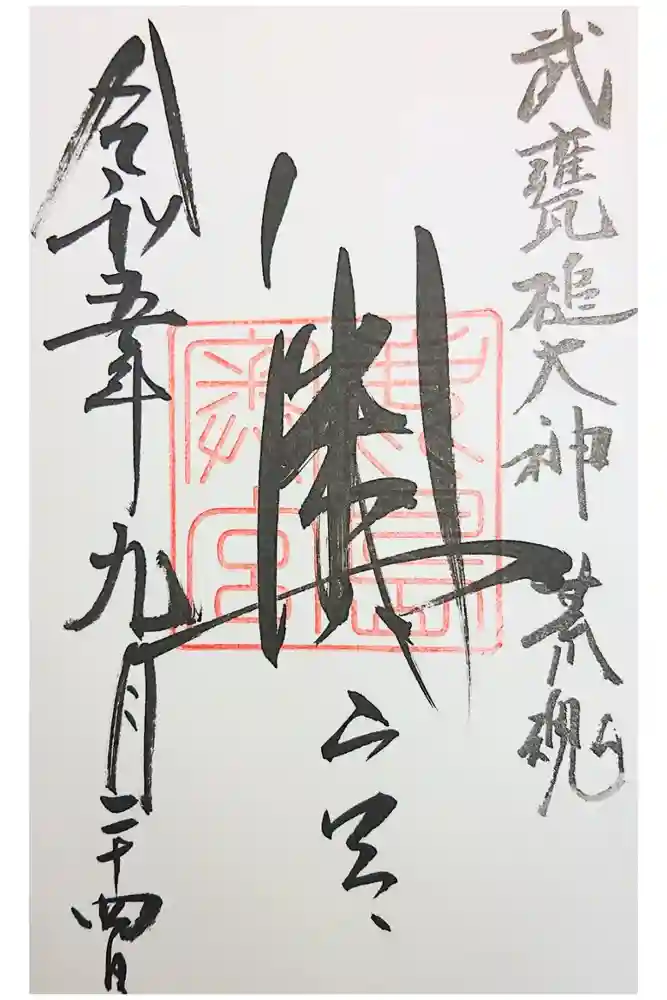 武甕槌大神 荒魂
奥宮
鹿島
奥宮
令和五年九月二十四日